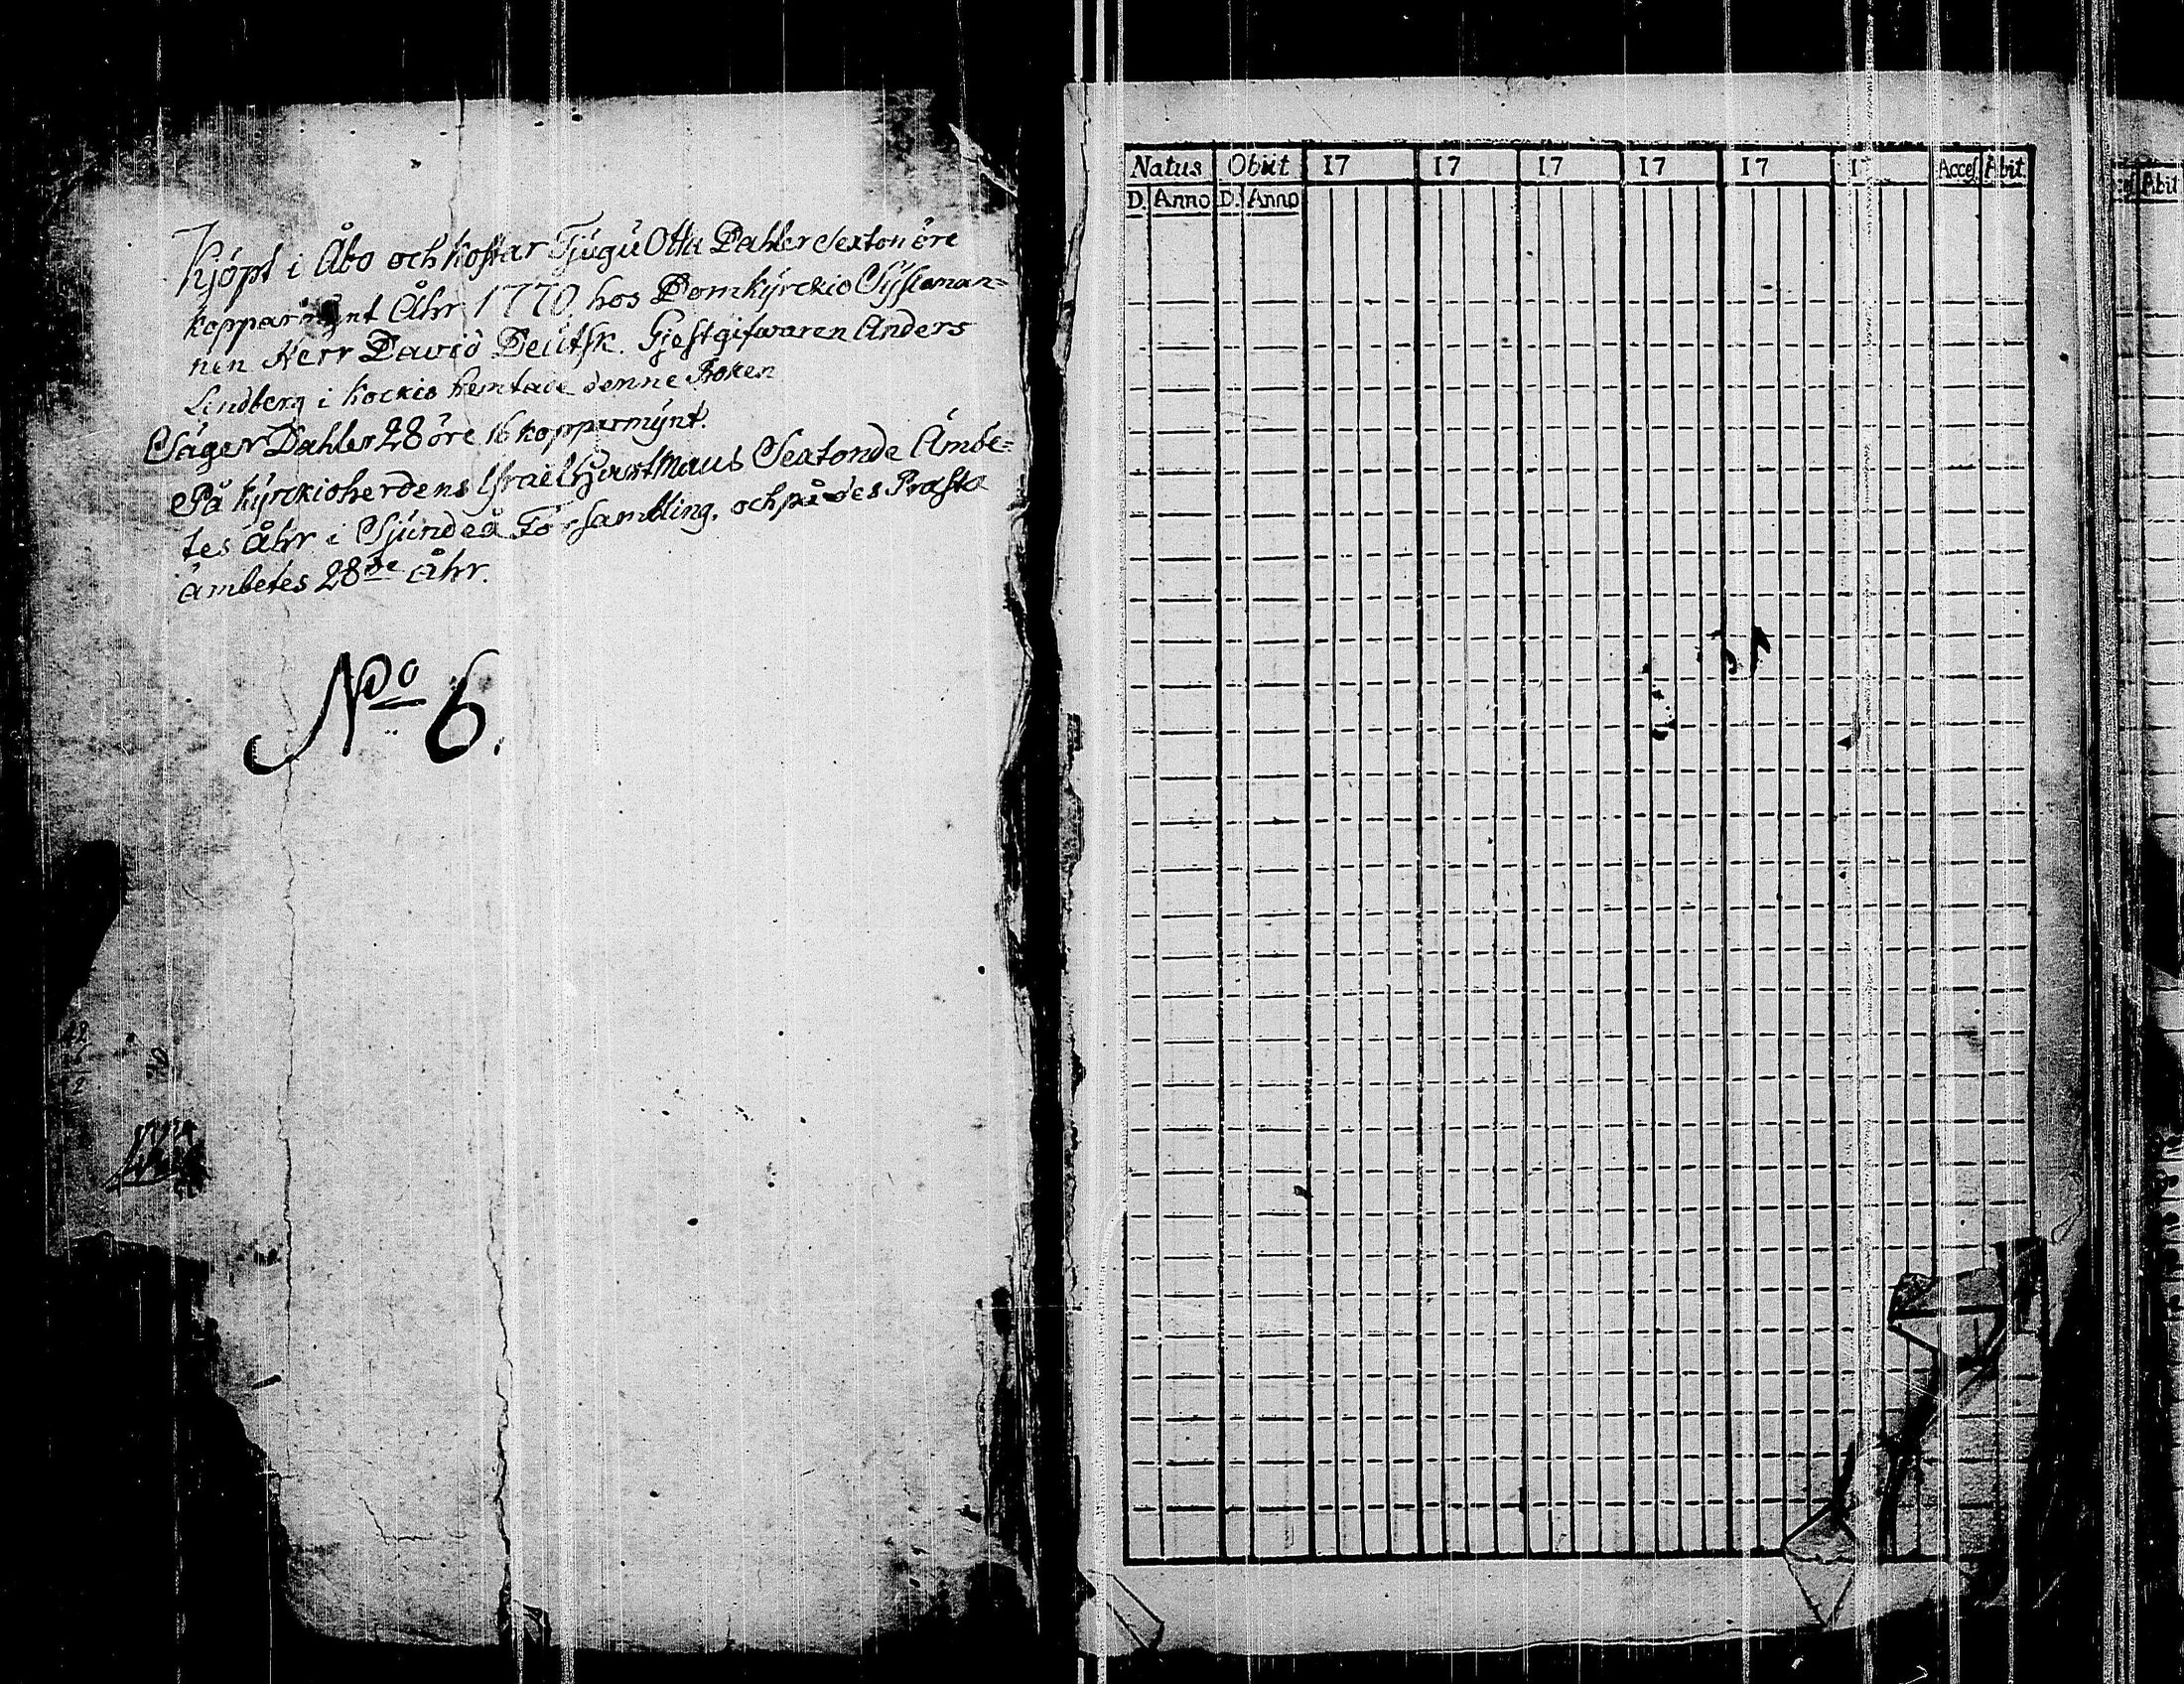 Kjöpt i Åbo och kostar Tjugu Otta Dahler Sexton öre
kopparmynt Åhr 1770, hos Domkyrckio Syssloman=
nen Herr David Deutsk. Gjestgifwaren Anders
Lindberg i Kockis hemtade denne Boken
Säger Dahler 28 öre 16 kopparmynt.
På kyrckioherdens Israel Hjartmaus Sextonde Ämbe=
tes Åhr i Sjundeå Försambling, och på des Prästa
ämbetes 28de Åhr.
No 6.
Natus Obiit 17 17 17 17 17 1 Acces. Abit
D. Anno D. Anno
Abit